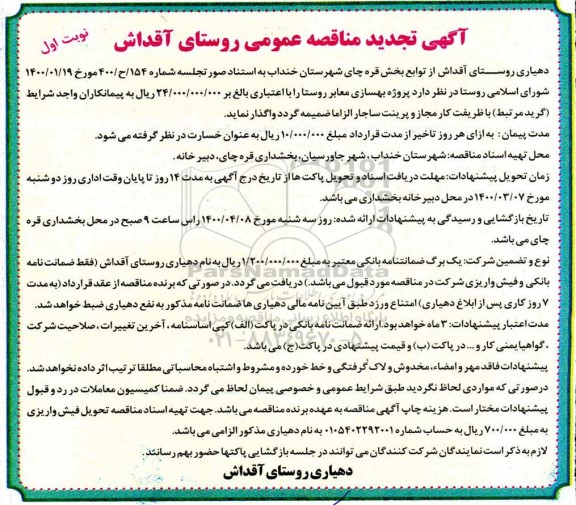 آگهی تجدید مناقصه عمومی روستای آقداش
نوبت اول
دهیاری روستای آقداش از توابع بخش قره چای شهرستان خنداب به استناد صورتجلسه شماره ۱۵۴/ح/۴۰۰ مورخ ۱۴۰۰/۰۱/۱۹
شورای اسلامی روستا در نظر دارد پروژه بهسازی معابر روستا را با اعتباری بالغ بر ۲۴/۰۰۰/۰۰۰/۰۰۰ ریال به پیمانکاران واجد شرایط
(گرید مرتبط) با ظریفت کار مجاز و پرینت ساجار الزاما ضمیمه گردد واگذار نماید.
مدت پیمان : به ازای هر روز تاخیر از مدت قرارداد مبلغ ۱۰/۰۰۰/۰۰۰ ریال به عنوان خسارت در نظر گرفته می شود.
محل تهیه اسناد مناقصه: شهرستان خنداب ، شهر جاورسیان، بخشداری قره چای، دبیر خانه .
زمان تحویل پیشنهادات: مهلت دریافت اسناد و تحویل پاکت ها از تاریخ درج آگهی به مدت ۱۴ روز تا پایان وقت اداری روز دو شنبه
مورخ ۱۴۰۰/۰۳/۰۷ در محل دبیر خانه بخشداری می باشد.
تاریخ بازگشایی و رسیدگی به پیشنهادات ارائه شده: روز سه شنبه مورخ ۱۴۰۰/۰۴/۰۸ راس ساعت ۹ صبح در محل بخشداری قره
چای می باشد.
نوع و تضمین شرکت: یک برگ ضمانتنامه بانکی معتبر به مبلغ ۱/۲۰۰/۰۰۰/۰۰۰ ریال به نام دهیاری روستای آقداش (فقط ضمانت نامه
بانکی و فیش واریزی شرکت در مناقصه مورد قبول می باشد.) دریافت می گردد. در صورتی که برنده مناقصه از عقد قرارداد (به مدت
۷ روز کاری پس از ابلاغ دهیاری) امتناع ورزد طبق آیین نامه مالی دهیاری ها ضمانت نامه مذکور به نفع دهیاری ضبط خواهد شد.
مدت اعتبار پیشنهادات: ۳ ماه خواهد بود. ارائه ضمانت نامه بانکی در پاکت (الف) کپی اساسنامه ، آخرین تغییرات ، صلاحیت شرکت
، گواهیایمنی کار و ... در پاکت (ب) و قیمت پیشنهادی در پاکت (ج) می باشد.
پیشنهادات فاقد مهر و امضاء، مخدوش و لاک گرفتگی و خط خورده و مشروط و اشتباه محاسباتی مطلقا ترتیب اثر داده نخواهد شد.
در صورتی که مواردی لحاظ نگردید طبق شرایط عمومی و خصوصی پیمان لحاظ می گردد. ضمنا کمیسیون معاملات در رد و قبول
پیشنهادات مختار است. هزینه چاپ آگهی مناقصه به عهده برنده مناقصه می باشد. جهت تهیه اسناد مناقصه تحویل فیش واریزی
به مبلغ ۷۰۰/۰۰۰ ریال به حساب شماره ۰۱۰۵۴۰۲۲۹۲۰۰۱ به نام دهیاری مذکور الزامی می باشد.
لازم به ذکر است نمایندگان شرکت کنندگان می توانند در جلسه بازگشایی پاکتها حضور بهم رسانند.
دهیاری روستای آقداش
ParsNamadData
پایگاه اطلاع رسانی مناقصه و مزایده
۰۲۱-۸۸۳۴۹۶۷۰-۵